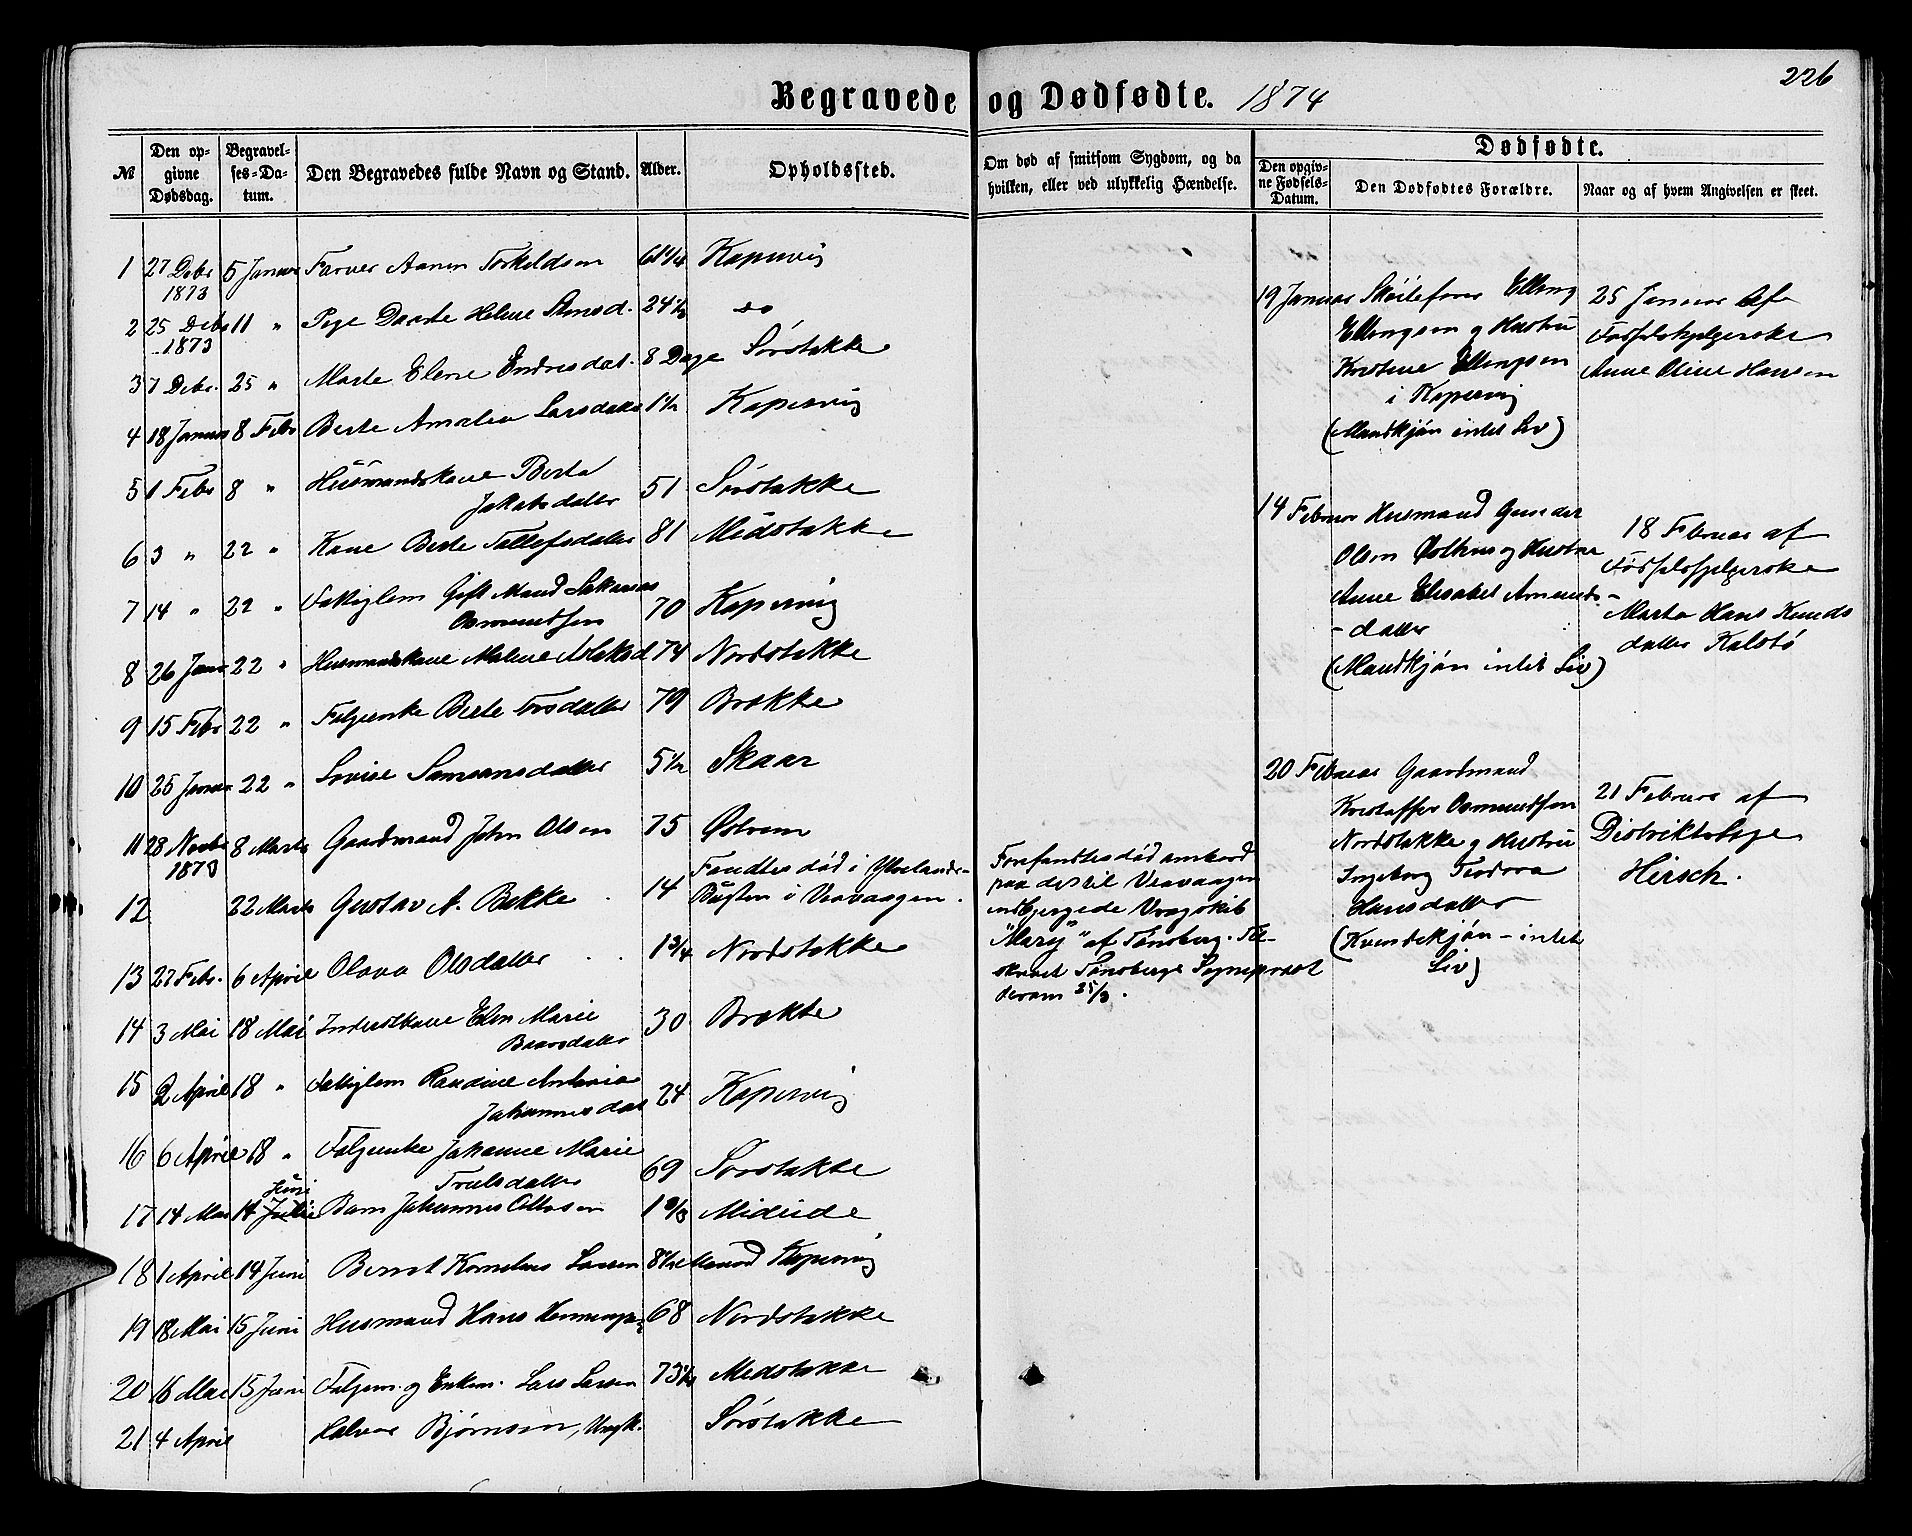 226
Begravede og Dødfødte. 1874
№
Den opgivne Dødsdag.
Begravelses-Datum.
Den Begravedes fulde Navn og Stand.
Alder.
Opholdssted.
Om død af smitsom Sygdom, og da hvilken, eller ved ulykkelig Hændelse.
Dødfødte.
Den opgivne Fødsels-Datum.
Den Dødfødtes Forældre.
Naar og af hvem Angivelsen er skeet.
1 27 Debr 1873 5 Januar Farver Aanen Torkildsen 61 1/4 Kopervig
2 25 Debr 1873 11 " Pige Daarte Helene 24 1/2 do
3 7 Debr. 25 " Marte Elene Endresdat. 8 Dage Sørstokke
4 18 Januar 8 Febr Berte Amalia Larsdatter 1 1/2 Kopervig
5 1 Febr 8 " Huusmandskone Berta
Jakobsdatter 51 Sørstokke
6 3 " 22 " Kone Berte Tollefsdatter 81 Midstokke
7 14 " 22 " Fattiglem Gift Mand Sakarias
Osmundsen 70 Kopervig
8 26 Janr 22 " Husmandskone Malene 74 Nordstokke
9 15 Febr 22 " Følgeenke Berte 79 Brekke
10 25 Januar 22 " Lovise Samsonsdatter 5 1/2 Skaar
11 28 Novbr 1873 8 Marts Gaardmand John Olsen 75 Østrem
12 22 Marts Gustav A. Bakke 14 Fandtes død i
i Veavaagen.
13 27 Febr. 6 April Olava Olsdatter 1 3/4 Nordstokke
14 3 Mai 18 Mai Inderstkone Elen Marie
Baarsdatter 30 Brekke
15 2 April 18 " Fattiglem Randine Antonia
Johannesdat 24 Kopervig
16 6 April 18 " Følgeenke Johanne Marie
Troulsdatter 69 Sørstokke
17 14 Mai 14 Juni Barn Johannes Ottosen Mideide
18 1 April 14 Juni Bernt Kornelius Larsen Kopervig
19 18 Mai 15 Juni Husmand Hans 68 Nordstokke
20 16 Mai 15 Juni Følgem. og Enkem. Lars Larsen 73 1/2 Medstokke
21 4 April Halvor Bjørnsen, Ungk. Sørstokke
Forefandtes død ombord
paa det til Veavaagen
indbjergede Vragskib
"Mary" af Tønsberg. Til-
skrevet Tønsbergs Sogneprest
derom 25/3.
19 Januar Elling
Ellingsen og Hustru
Kristine Ellingsen
i Kopervig
(Mandkjøn intet Liv)
25 Januar af
Fødselshjelperske
Anne Oline Hansen
14 Februar Husmand Gunder
Olsen og Hustru
Anne Elisabet Amunds-
-datter
(Mandkjøn intet Liv)
18 Februar af
Fødselshjelperske
Marta Hans Knuds
datter Kalstø
20 Februar Gaardmand
Kristoffer Osmundsen
Nordstokke og Hustru
Ingeborg Teodora
Hansdatter
(Kvindekjøn - intet
Liv)
21 Februar af
Distriktslæge
Hirsch.